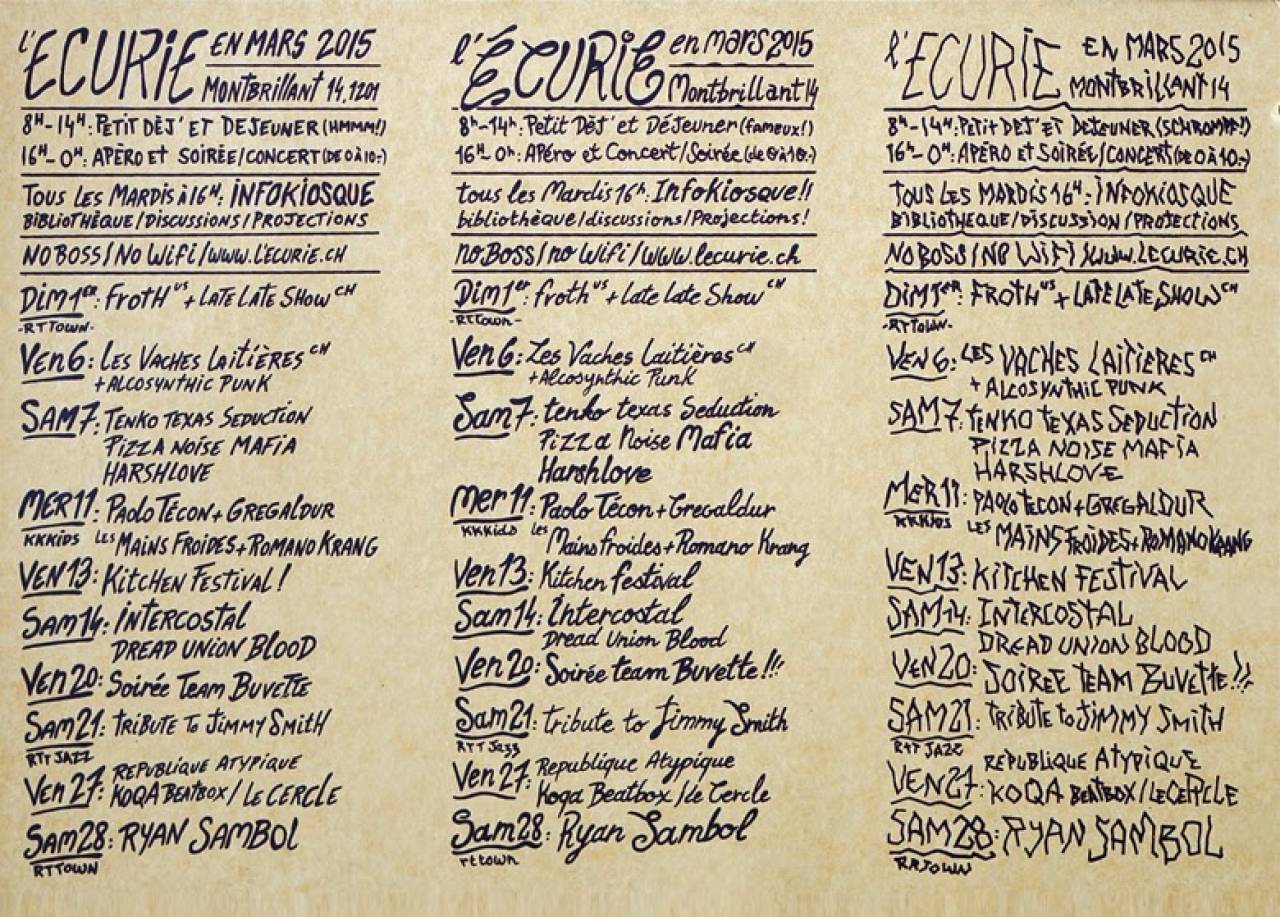 l'ECURiE EN MARS 2015
MONTBRillANT 14.1201
8H-14H: PETiT DÈJ' ET DEJEUNER (HMMM!)
16H-0H: APÈRO ET SOIRÉE/CONCERT (DE 0 À 10.-)
TOUS LES MARDiS à 16H: iNFOKiOSQUE
BiBLiOTHÈQUE/DiSCUSSiONS/PROJECTiONS
NO BOSS/NO WiFi/WWW.L'ECURiE.CH
DiM 1er: FROTH US + LATE LATE SHOW CH
-RTTOWN-
VEN 6: LES VACHES LAiTiÈRES CH
+ ALCOSYNTHiC PUNK
SAM 7: TENKO TEXAS SEDUCTiON
PiZZA NOiSE MAFiA
HARSHLOVE
MER 11: PAOLO TÉCON + GREGALDUR
KKKiDS LES MAiNS FROiDES + ROMANO KRANG
VEN 13: KiTCHEN FESTiVAL!
SAM 14: iNTERCOSTAL
DREAD UNiON BLOOD
VEN 20: SOiRÉE TEAM BUVETTE
SAM 21: TRiBUTE TO JiMMY SMiTH
RTT JAZZ
REPUBLiQUE ATYPiQUE
VEN 27: KOQA BEATBOX / LE CERCLE
SAM 28: RYAN SAMBOL
RTTOWN
l'ÉCURiE en mars 2015
Montbrillant 14
8h-14h: Petit Dèj' et Déjeuner (fameux!)
16H-0h: APéro et Concert/Soirée (de 0 à 10.-)
tous les Mardis 16h: Infokiosque!!
bibliothèque/discussions/Projections!
no Boss/no Wifi/www.lecurie.ch
Dim 1er: froth US + late late Show CH
-RTTown-
Ven 6: Les Vaches Laitières CH
+ Alcosynthic Punk
Sam 7: tenko texas Seduction
Pizza Noise Mafia
Harshlove
Mer 11: Paolo Técon + Gregaldur
KKKids les Mains froides + Romano Krang
Ven 13: Kitchen festival
Sam 14: Intercostal
Dread Union Blood
Ven 20: Soirée team Buvette!!!
Sam 21: Tribute to Jimmy Smith
RTT Jazz
Republique Atypique
Ven 27: Koqa Beatbox / le Cercle
Sam 28: Ryan Sambol
rttown
l'ECURiE EN MARS 2015
MONTBRiLLANT 14
8H-14H: PETiT DEJ' ET DEJEUNER (SCHROMPF!)
16h-0H: APÉRO ET SOiRÉE/CONCERT (DE 0 À 10.-)
TOUS LES MARDiS 16H: iNFOKiOSQUE
BiBLiOTHEQUE/DiSCUSSiON/PROJECTiONS
NO BOSS/NO WiFi/WWW.LECURiE.CH
DiM 1ER: FROTH US + LATE LATE SHOW CH
-RTTOWN-
VEN 6: LES VACHES LAiTiERES CH
+ ALCOSYNTHiC PUNK
SAM 7: TENKO TEXAS SEDUCTiON
PiZZA NOiSE MAFiA
HARSHLOVE
MER 11: PAOLO TECON + GREGALDUR
KKKiDS LES MAiNS FROiDES + ROMANO KRANG
VEN 13: KiTCHEN FESTiVAL
SAM 14: INTERCOSTAL
DREAD UNiON BLOOD
VEN 20: SOiREE TEAM BUVETTE!!
SAM 21: TRiBUTE to JiMMY SMiTH
RTT JAZZ
REPUBLiQUE ATYPiQUE
VEN 27: KOQA BEATBOX / LE CERCLE
SAM 28: RYAN SAMBOL
RRTOWN